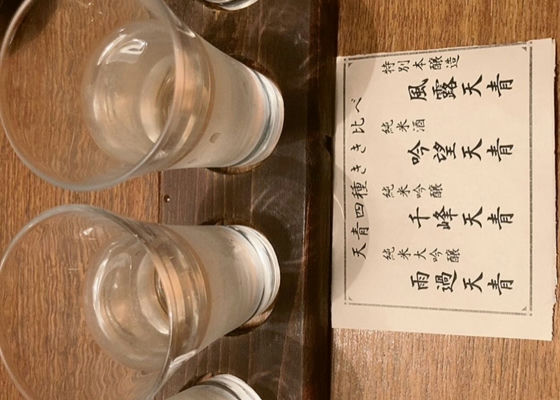 天青四種きき比べ
特別本醸造
風露天青
純米酒
吟望天青
純米吟醸
千峰天青
純米大吟醸
雨過天青